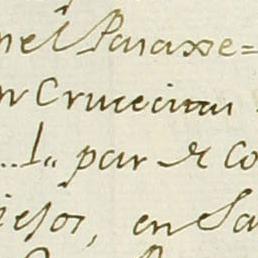 nel Paraxe=
n Crucecitas
...l,, par de Co
iejos, en Sa